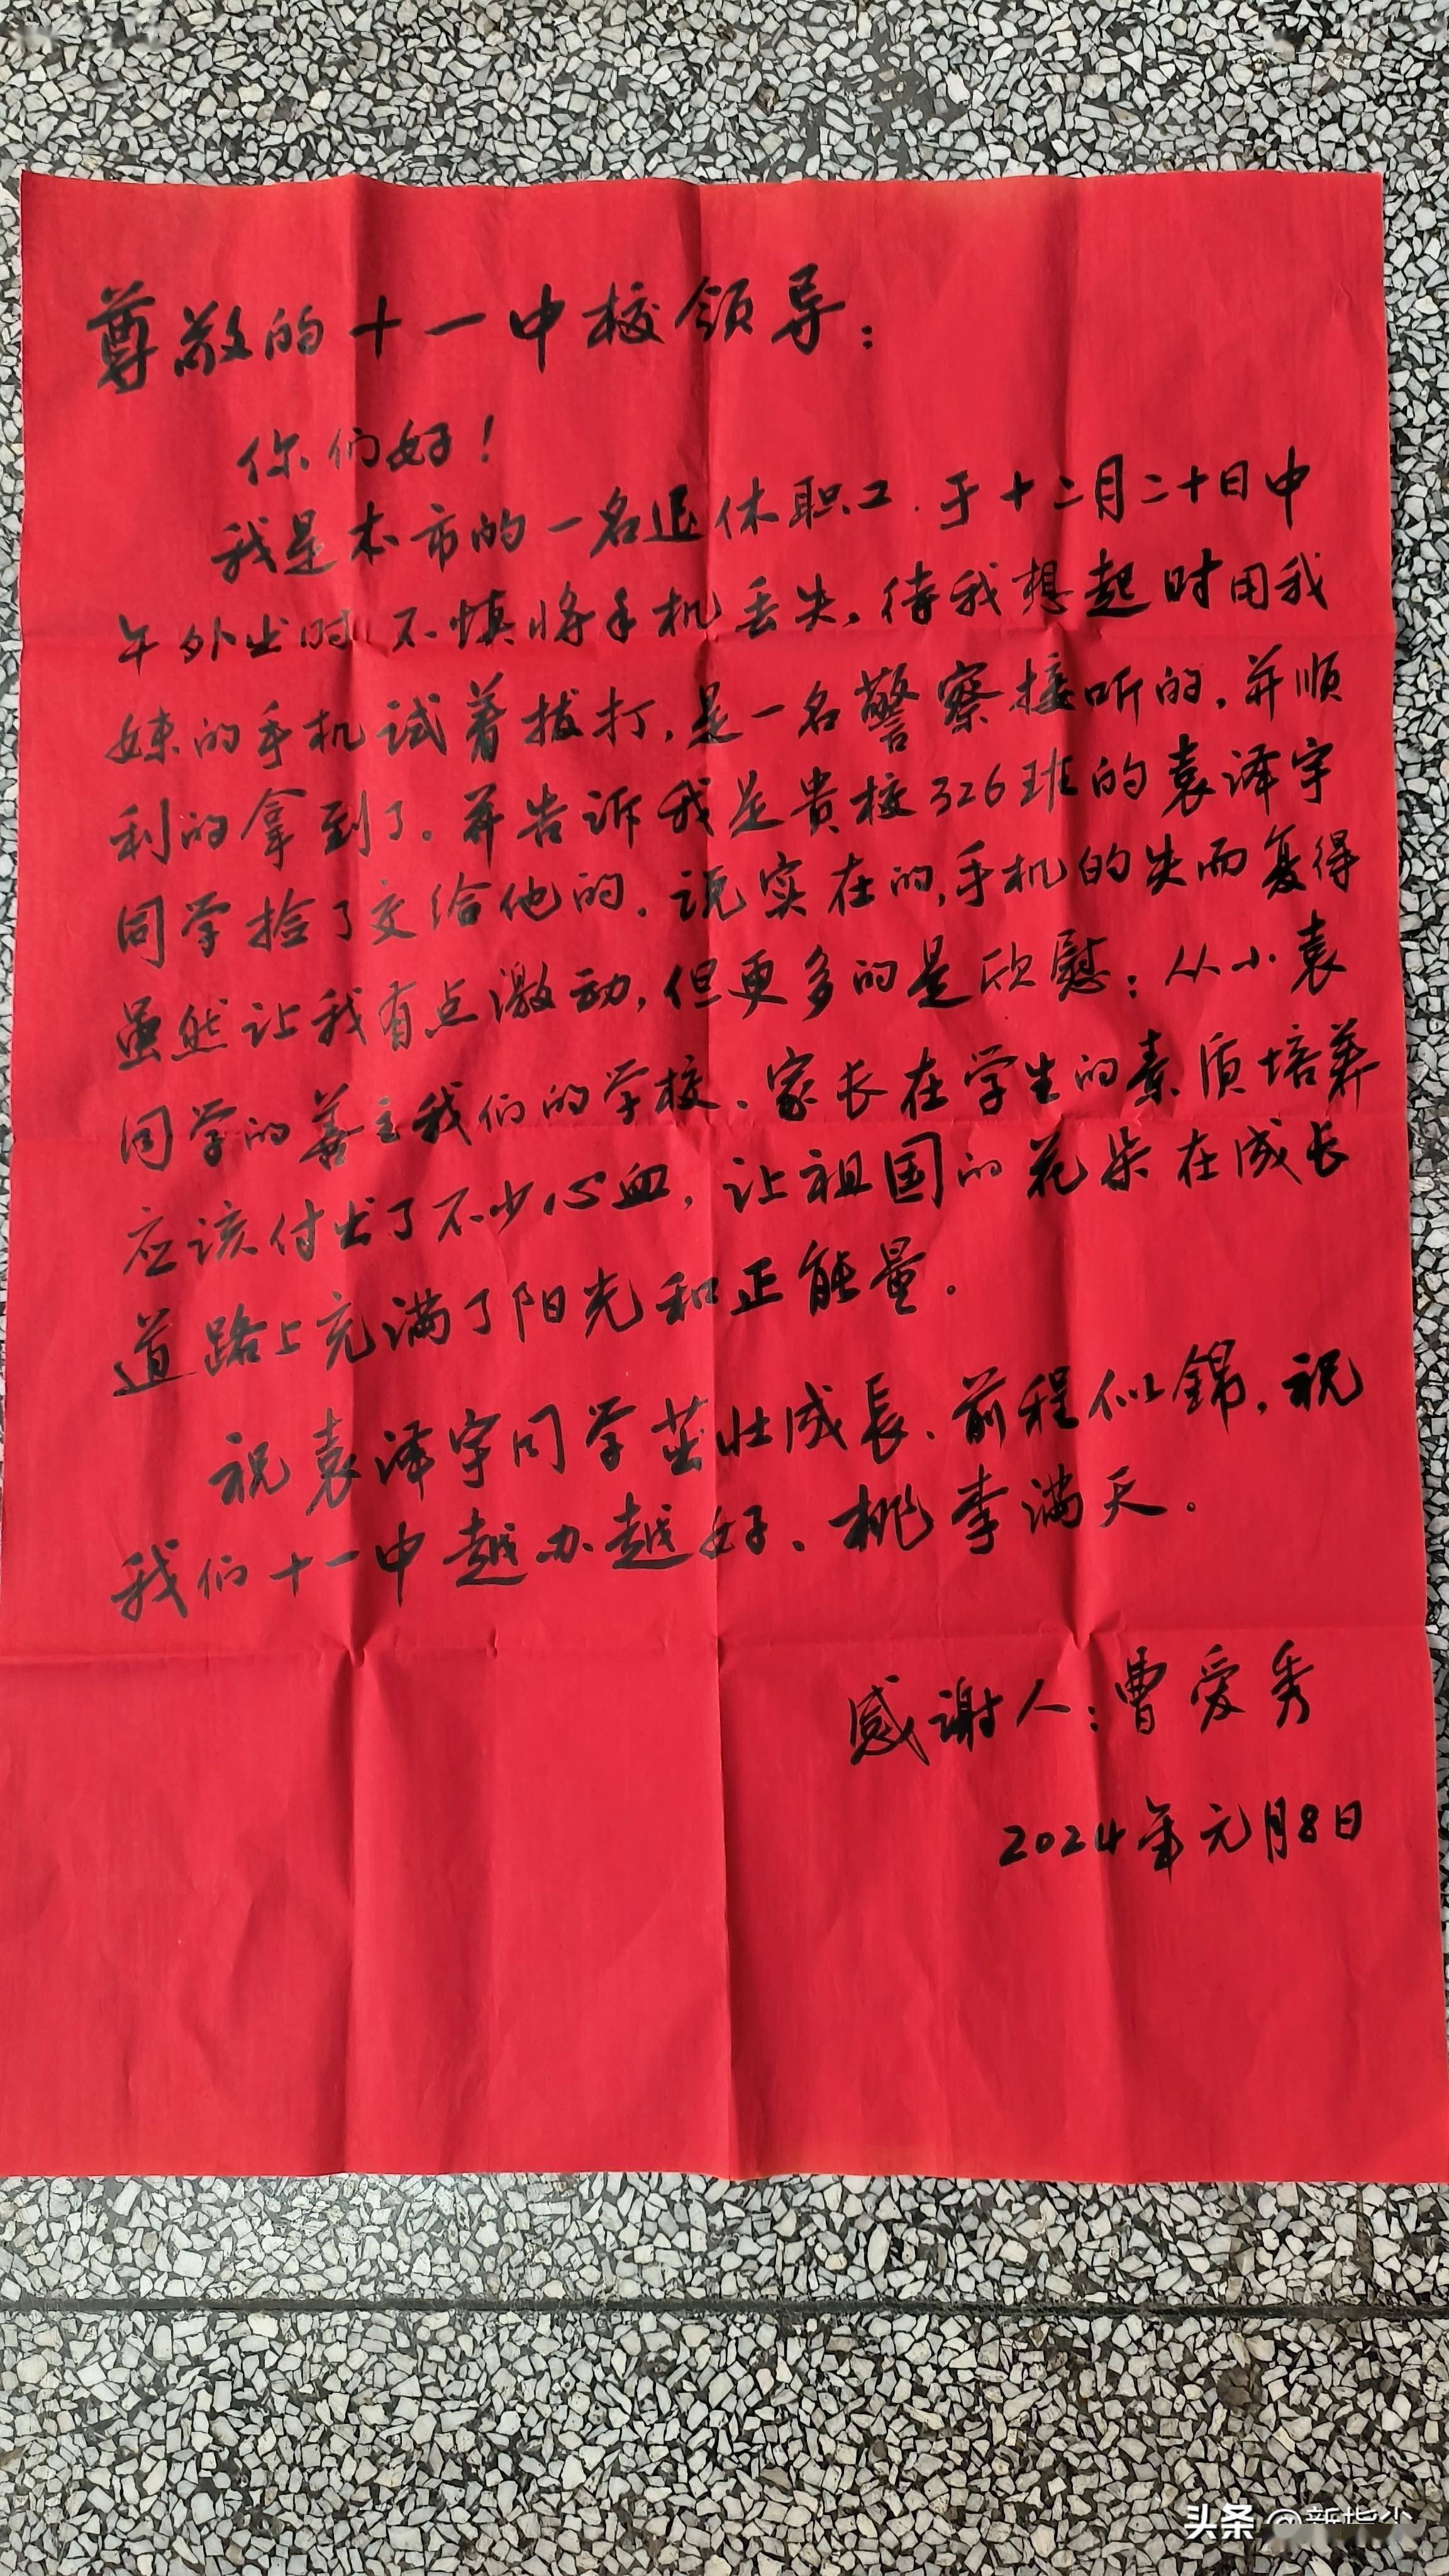 尊敬的十一中校领导：
你们好！
我是本市的一名退休职工.于十二月二十日中
午外出时不慎将手机丢失,待我想起时用我
妹的手机试着拔打,是一名警察接听的,并顺
利的拿到了。并告诉我是贵校326班的袁泽宇
同学捡了交给他的.说实在的,手机的失而复得
虽然让我有点激动,但更多的是欣慰：从小袁
同学的善 我们的学校、家长在学生的素质培养
应该付出了不少心血,让祖国的花朵在成长
道路上充满了阳光和正能量.
祝袁泽宇同学茁壮成長、前程似錦,祝
我们十一中越办越好、桃李满天.
感谢人：曹爱秀
2024年元月8日
头条